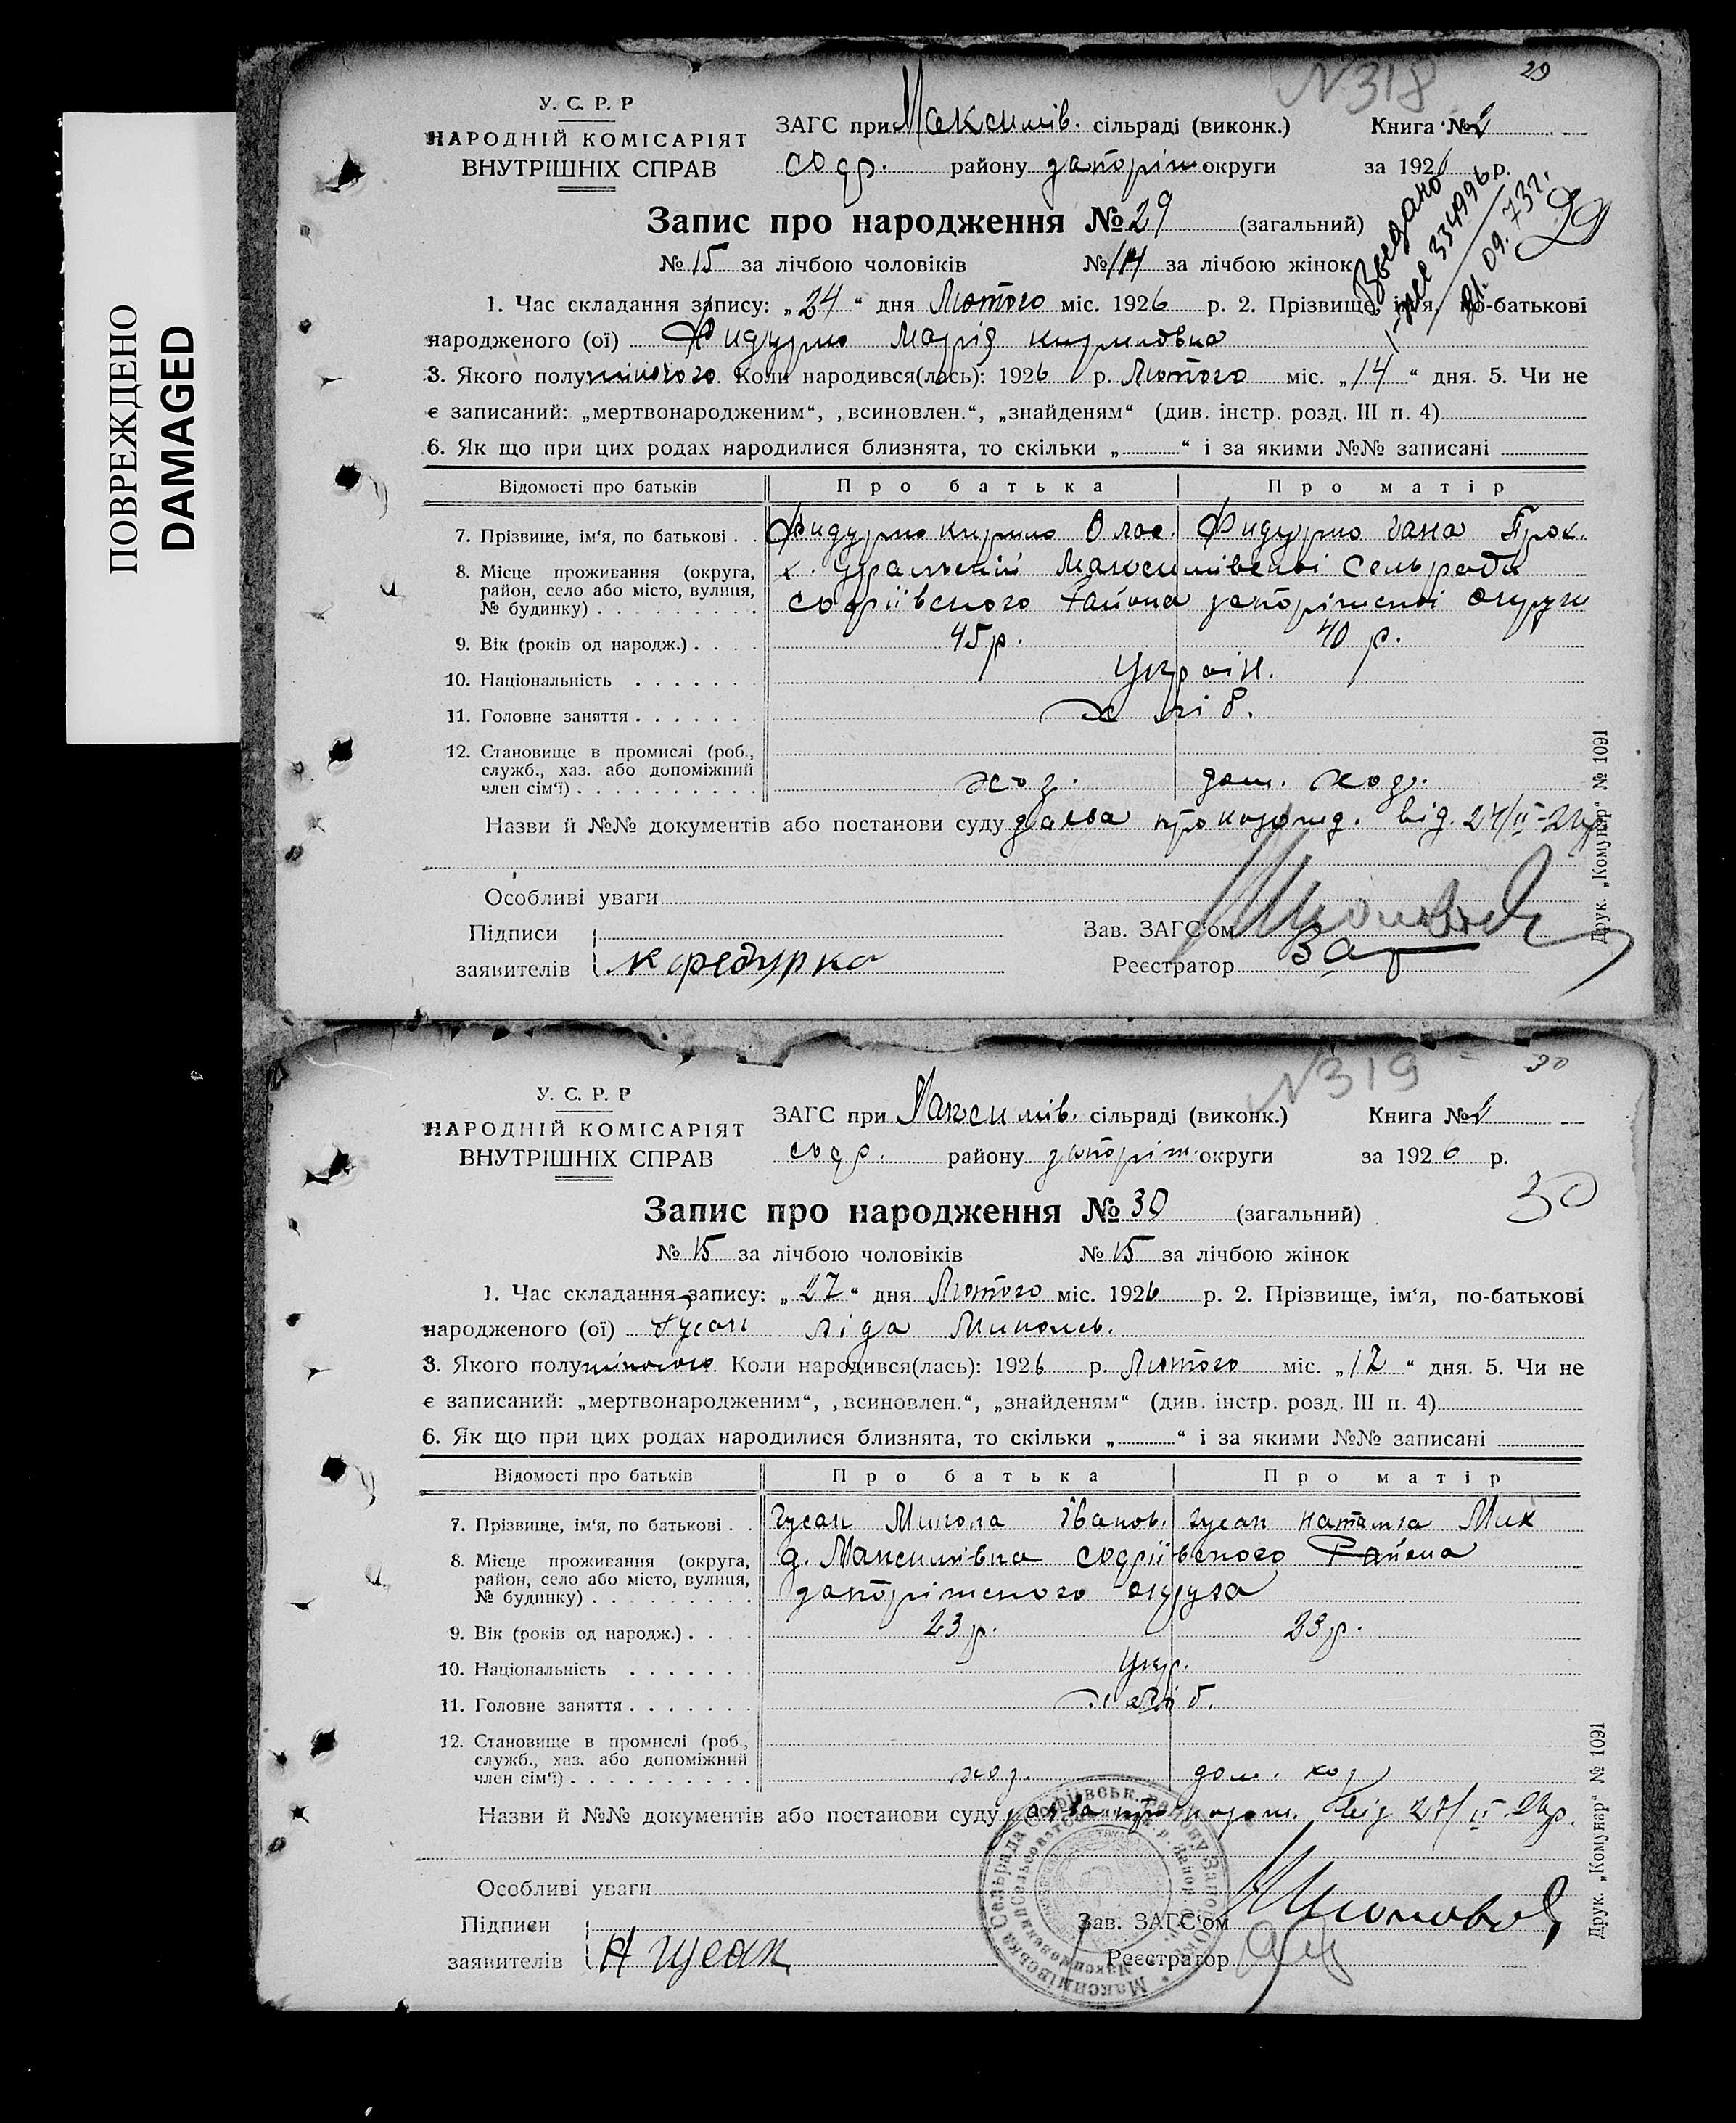 ПОВРЕЖДЕНО
DAMAGED
N 318
29
У. С. Р. Р
НАРОДНІЙ КОМІСАРІЯТ
ВНУТРІШНІХ СПРАВ
ЗАГС при Максимів. сільраді (виконк.) Книга № 2
Соф. району Запоріж округи за 1926 р.
Запис про народження № 29 (загальний)
Выдано
334996
21.09.73г.
29
№ 15 за лічбою чоловіків № 14 за лічбою жінок
1. Час складання запису: „24“ дня Лютого міс. 1926 р. 2. Прізвище, ім'я, по-батькові
народженого (ої) Фидурко Марія Кириловна
3. Якого полу жіночого. Коли народився(лась): 1926 р. Лютого міс. „14“ дня. 5. Чи не
є записаний: „мертвонародженим“, „всиновлен.“, „знайденям“ (див. інстр. розд. III п. 4)
6. Як що при цих родах народилися близнята, то скільки „ “ і за якими №№ записані
Відомості про батьків Про батька Про матір
7. Прізвище, ім'я, по батькові . . Фидурко Кирило Влас. Фидурко Гана Прок.
8. Місце проживання (округа, х. Максимівської Сельради
район, село або місто, вулиця,
№ будинку) Софіївського Района Запоріжської округи
9. Вік (років од народж.) 45 р. 40 р.
10. Національність Україн.
11. Головне заняття хліб.
12. Становище в промислі (роб.,
служб., хаз. або допоміжний
член сім'ї) хоз. дом. хоз.
Назви й №№ документів або постанови суду заява про народж. від. 24/II-26р
Особливі уваги
Підписи
заявителів К Федурка
Зав. ЗАГС'ом
Реєстратор
Друк. „Комунар“ № 1091
N 319
30
У. С. Р. Р
НАРОДНІЙ КОМІСАРІЯТ
ВНУТРІШНІХ СПРАВ
ЗАГС при Максимів. сільраді (виконк.) Книга № 2
Соф. району Запоріж. округи за 1926 р.
30
Запис про народження № 30 (загальний)
№ 15 за лічбою чоловіків № 15 за лічбою жінок
1. Час складання запису: „27“ дня Лютого міс. 1926 р. 2. Прізвище, ім'я, по-батькові
народженого (ої) Гусак Ліда Микольов.
3. Якого полу жіночого Коли народився(лась): 1926 р. Лютого міс. „12“ дня. 5. Чи не
є записаний: „мертвонародженим“, „всиновлен.“, „знайденям“ (див. інстр. розд. III п. 4)
6. Як що при цих родах народилися близнята, то скільки „ “ і за якими №№ записані
Відомості про батьків Про батька Про матір
7. Прізвище, ім'я, по батькові . . Гусак Микола Іванов. Гусак Наталка Мик
8. Місце проживання (округа, д. Максимівка Софіївського Района
район, село або місто, вулиця,
№ будинку) Запоріжского округа
9. Вік (років од народж.) 23 р. 23 р.
10. Національність Укр.
11. Головне заняття хліб.
12. Становище в промислі (роб.,
служб., хаз. або допоміжний
член сім'ї) хоз. дом. хоз
Назви й №№ документів або постанови суду заява про народж. від 27/II-26р.
Особливі уваги
Підписи
заявителів Н Гусак
Зав. ЗАГС'ом
Реєстратор
Максимівська Сельрада Софіївськ. району Запор. Окр.
Друк. „Комунар“ № 1091